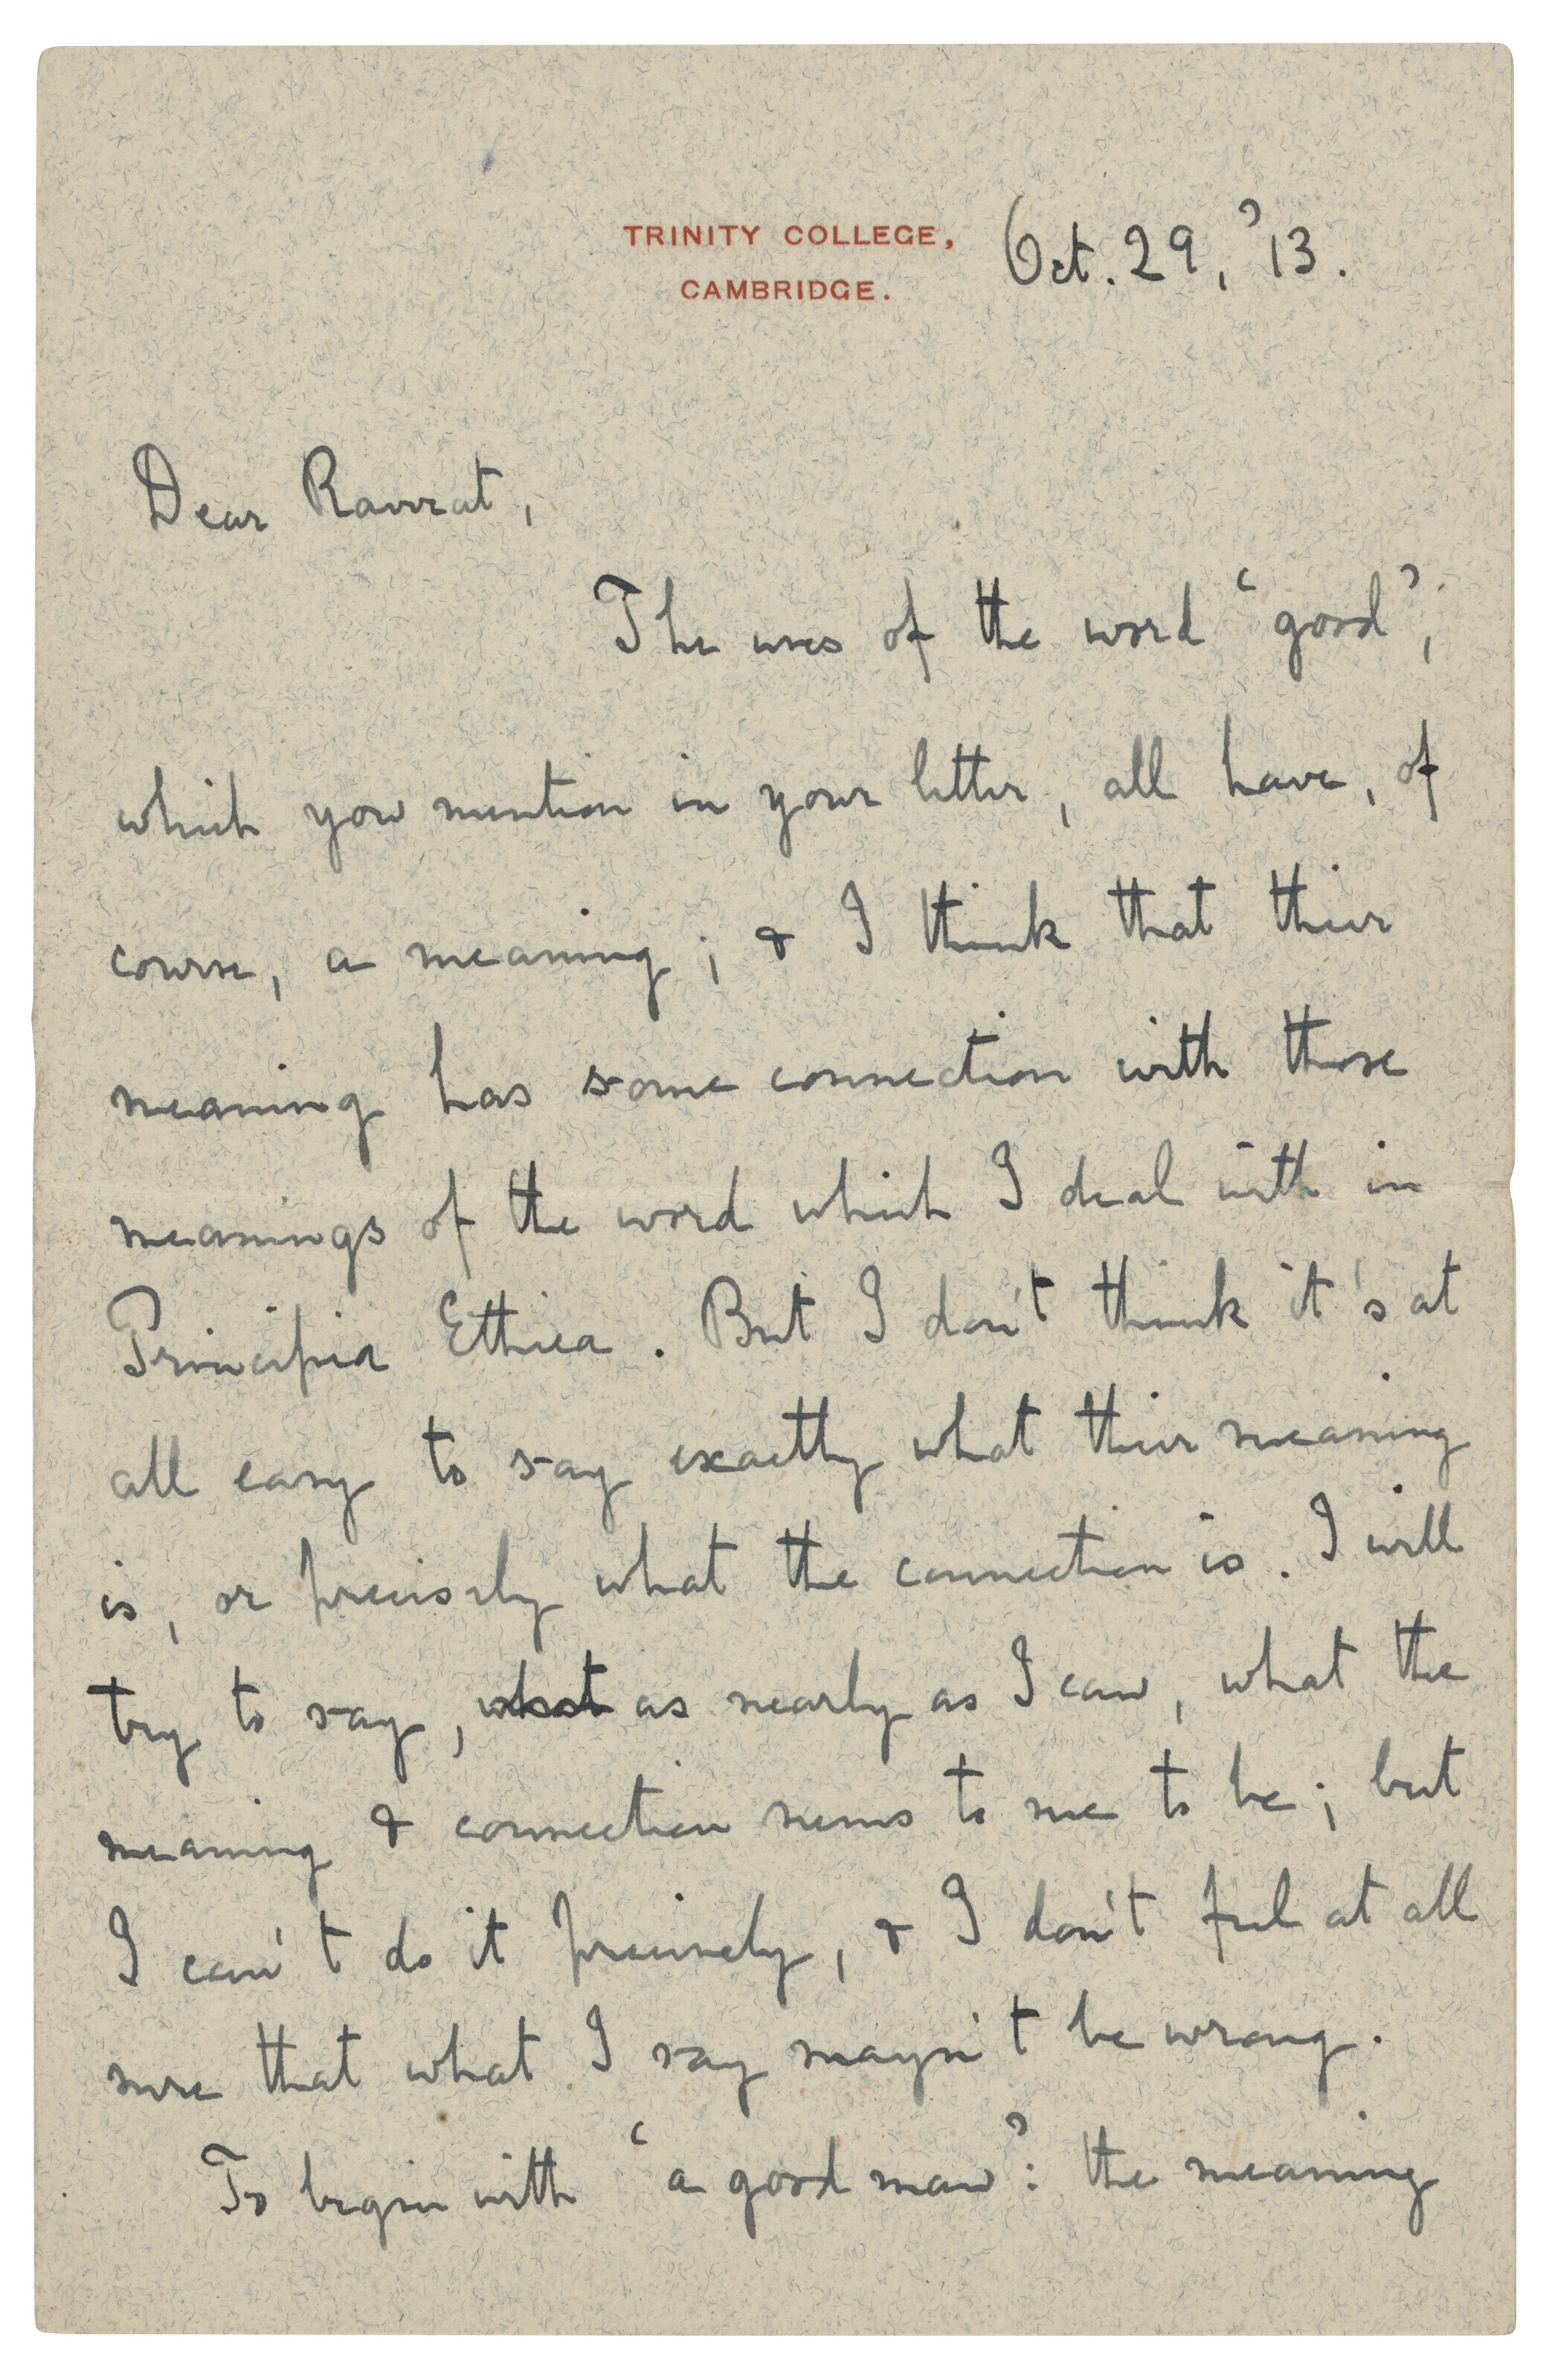 TRINITY COLLEGE,
CAMBRIDGE.
Oct. 29, '13.
Dear Raverat,
The uses of the word 'good',
which you mention in your letter, all have, of
course, a meaning; & I think that their
meaning has some connection with those
meanings of the word which I deal with in
Principia Ethica. But I don't think it's at
all easy to say exactly what their meaning
is, or precisely what the connection is. I will
try to say, what as nearly as I can, what the
meaning & connection seems to me to be; but
I can't do it precisely, & I don't feel at all
sure that what I say mayn't be wrong.
To begin with 'a good man': the meaning